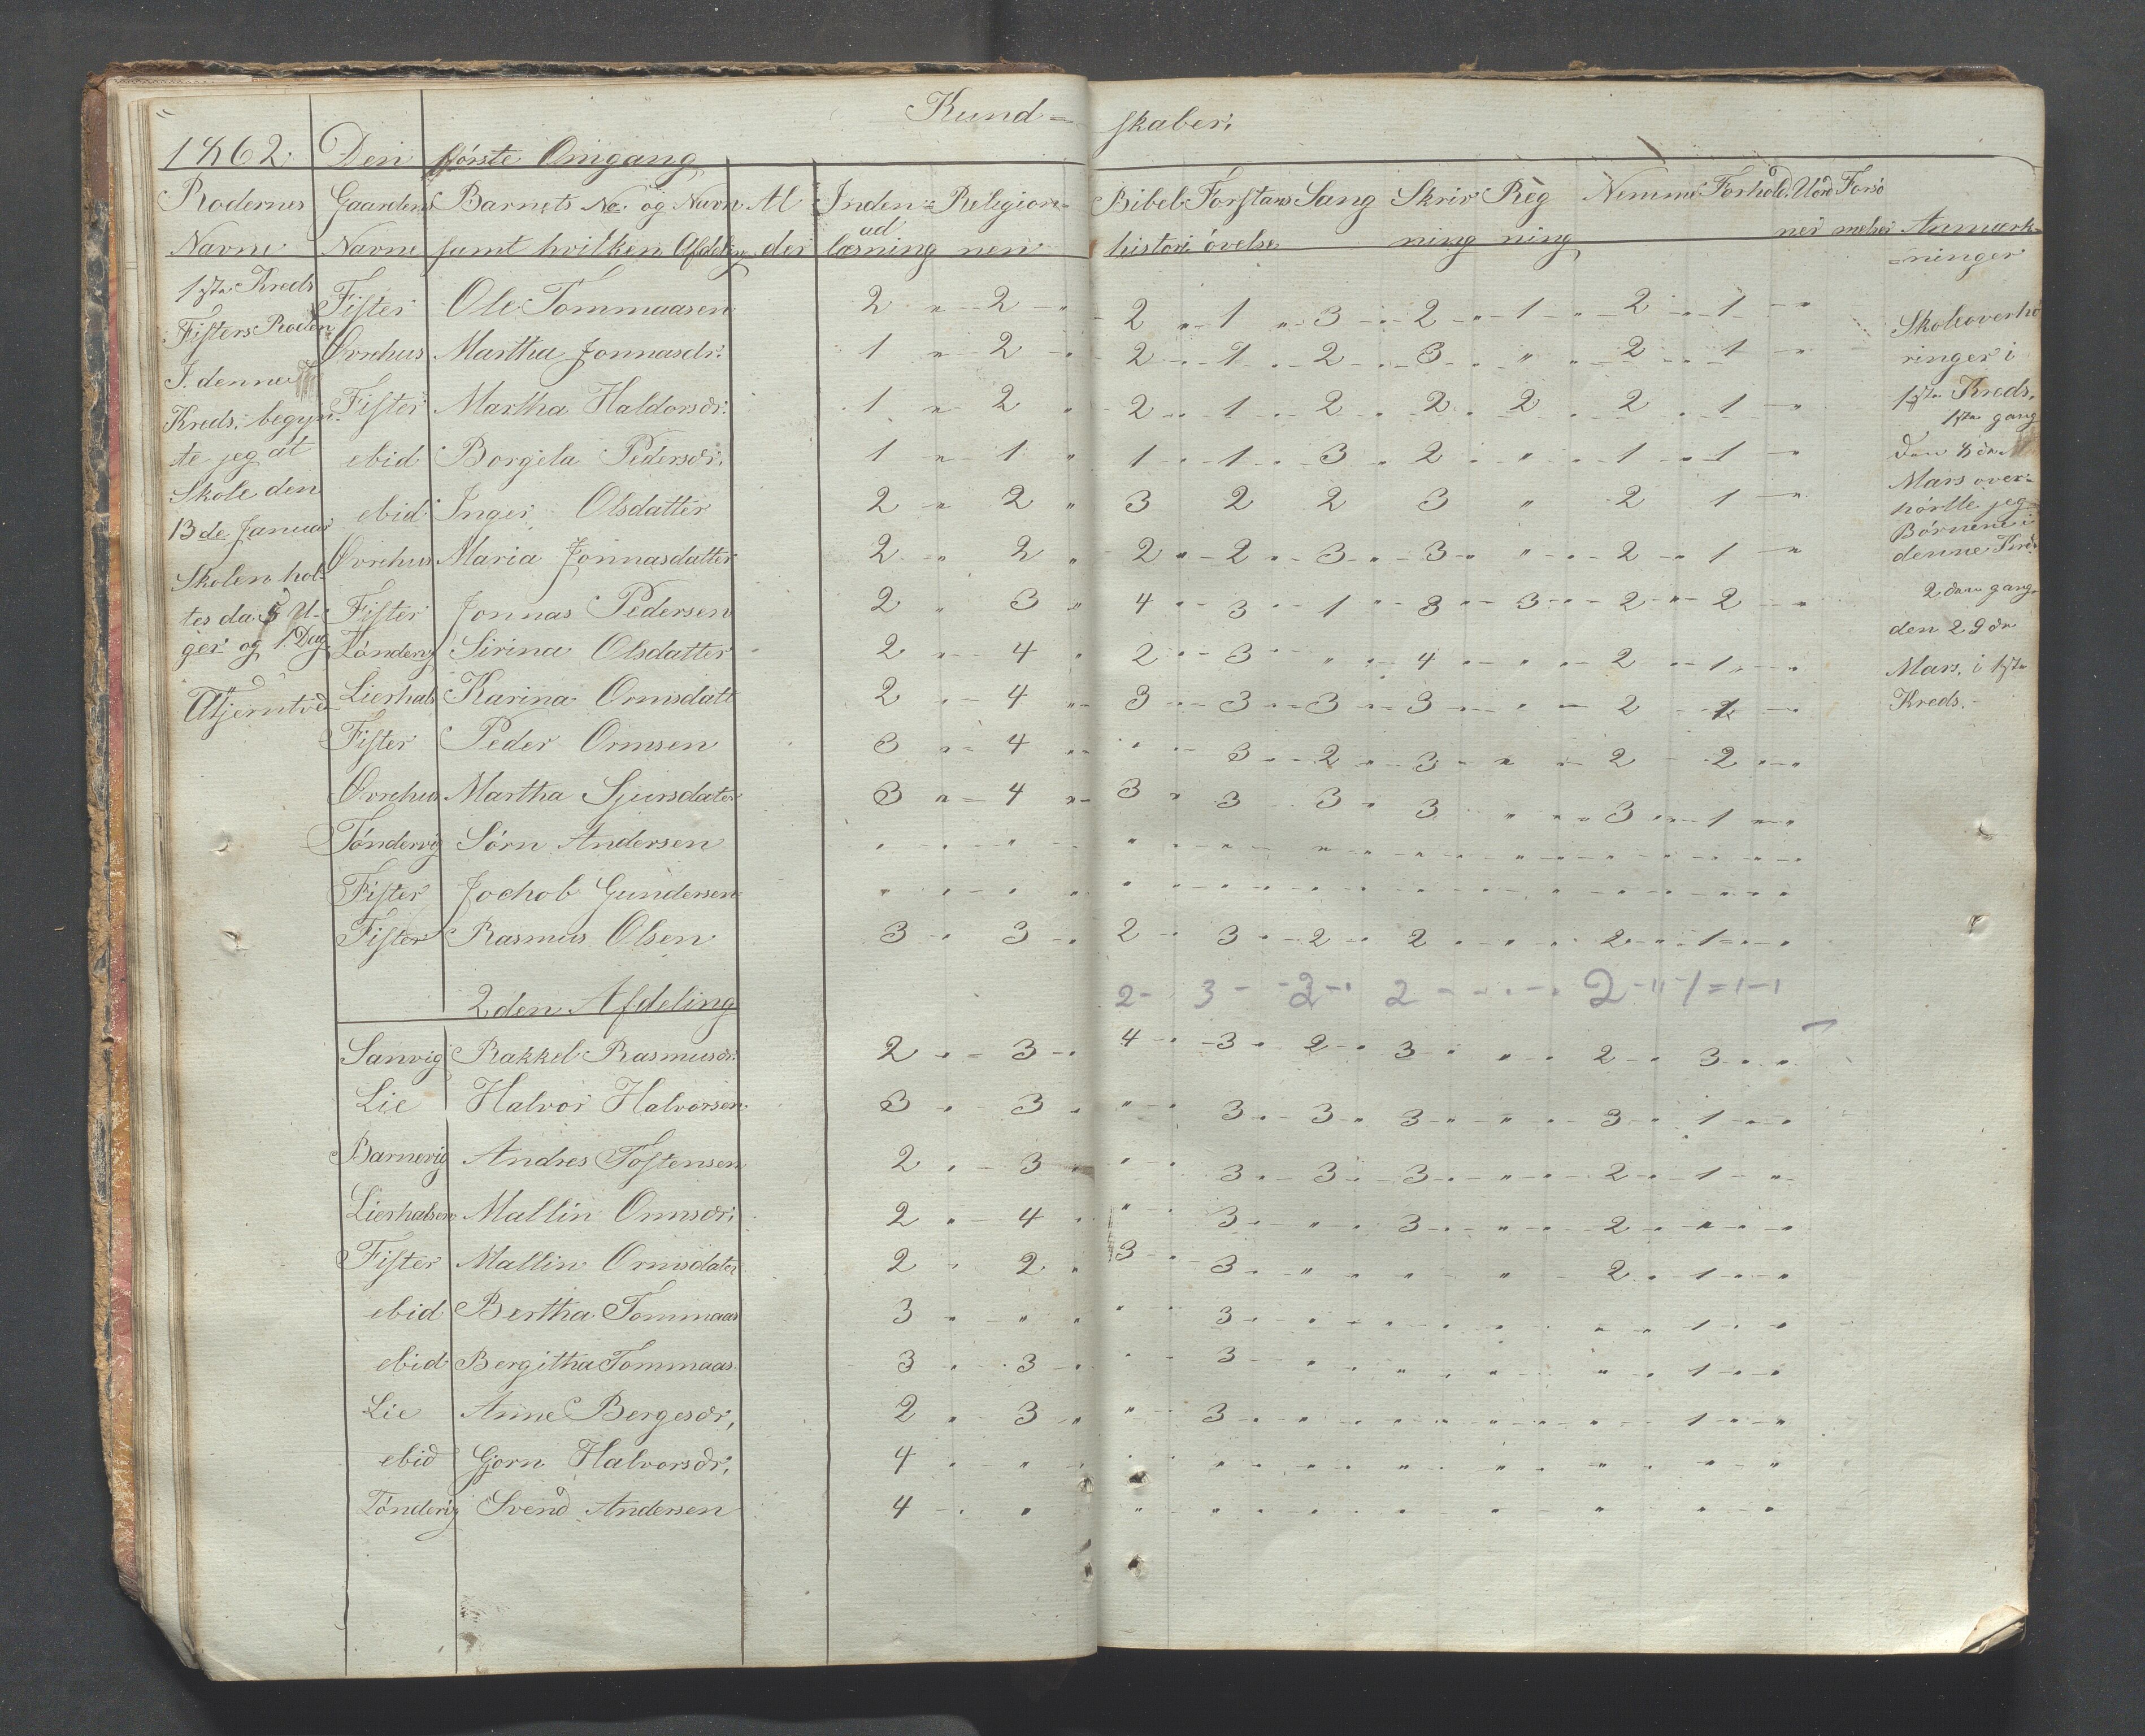 Kund= skaber:
1862. Den første Omgang
Rodernes Gaardens Barnets No. og Navn Al Inden= Religion= Bibel Forstans Sang Skriv Reg Nemme Forhold Uord Forsø
ud
Navne Navne samt hvilken Afdeling der læsning nen histori øvelse ning ning ner melser Anmærk=
=ninger
1ste Kreds
Fisters Roden
I denne
Kreds begyn-
te jeg at
Skole den
13de Januar
Skolen hol-
tes da 5 U-
ger og 1 Dag
Fister Ole Tommaasen 2 " 2 " 2 " 1 " 3 " 2 " 1 " 2 " 1 "
Ovrehus Martha Jonnasdr. 1 " 2 " 2 " 1 " 2 " 3 " " " 2 " 1 "
Fister Martha Haldorsdr. 1 " 2 " 2 " 1 " 2 " 2 " 2 " 2 " 1 "
ebid Borgela Pedersdr. 1 " 1 " 1 " 1 " 3 " 2 " " " 1 " 1 "
ebid Inger Olsdatter 2 " 2 " 3 2 2 3 " 2 1 "
Ovrehus Maria Jonnasdatter 2 " 2 " 2 " 2 " 3 " 3 " " " 2 " 1 "
Fister Jonnas Pedersen 2 " 3 " 4 " 3 " 1 " 3 " 3 " 2 " 2 "
Tøndevig Sirina Olsdatter 2 " 4 " 2 " 3 " " " 4 " " " 2 " 1 "
Lierhals Karina Ormsdatt 2 " 4 " 3 " 3 " 3 " 3 " " " 2 " 1 "
Fister Peder Ormsen 3 " 4 " " " 3 " 2 " 3 " " " 2 " 2 "
Ovrehus Martha Sjursdater 3 " 4 " 3 " 3 " 3 " 3 " " " 3 " 1 "
Tøndevig Sørn Andersen " " " " " " " " " "
Fister Jochob Gundersen " " " " " " " " " "
Fister Rasmus Olsen 3 " 3 " 2 " 3 " 2 " 2 " " " 2 " 1 "
2 - 3 - 2 - 2 - - - 2 - " 1 = 1 - 1
2den Afdeling
Sanvig Rakkel Rasmusdr. 2 " 3 " 4 " 3 " 2 " 3 " " " 2 " 3 "
Lie Halvor Halvorsen 3 " 3 " " " 3 " 3 " 3 " " " 3 " 1 "
Barnevig Andres Tostensen 2 " 3 " " " 3 " 3 " 3 " " " 2 " 1 "
Lierhalsen Mallin Ormsdr. 2 " 4 " " " 3 " " " 3 " " " 2 " " "
Fister Mallin Ormsdater 2 " 2 " 3 " 3 " " " " " " " 2 " 1 "
ebid Bertha Tommaas 3 " " " " " 3 " " " " " " " " " 1 "
ebid Bergitha Tommaas 3 " 3 " " " 3 " " " " " " " " " 1 "
Lie Anne Bergesdr, 2 " 3 " " " 3 " " " " " " " " " 1 "
ebid Gjorn Halvorsdr, 4 " " " " " " " " "
Tønderig Svend Andersen 4 " " " " " " " " "
Skoleoverhø
ringer i
1ste Kreds.
1ste gang
Den 8de
Mars over=
hørtte jeg
Børnene i
denne Kreds
2den gang
den 29de
Mars. i 1ste
Kreds.